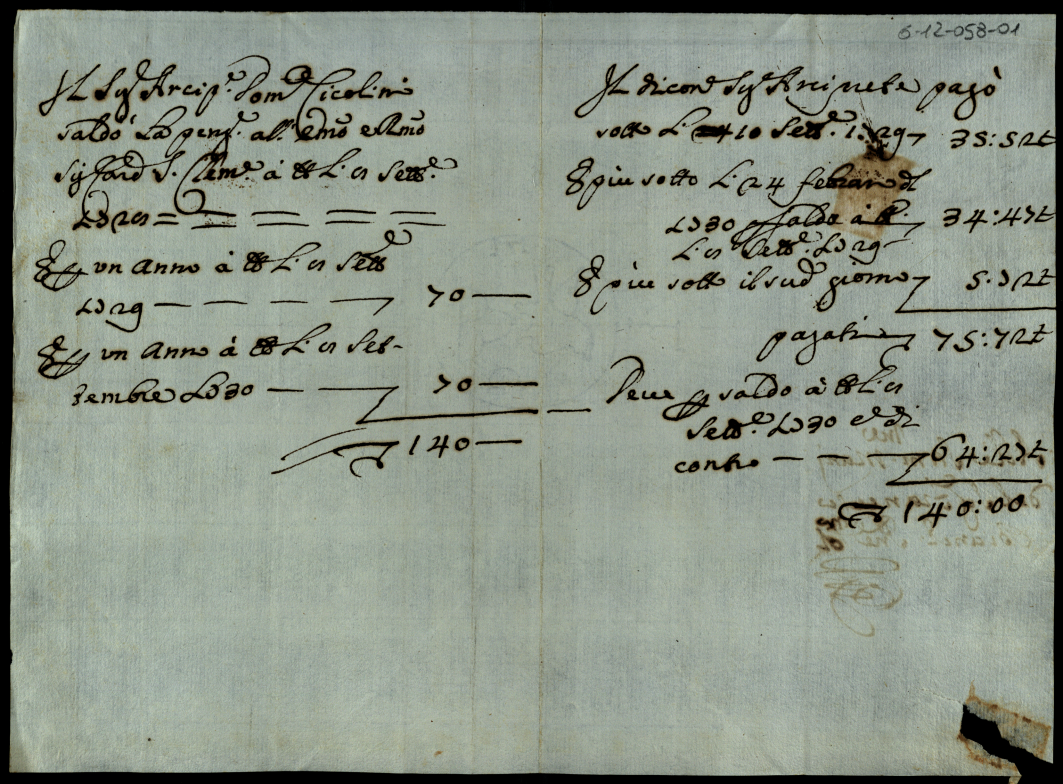 6-12-058-01
Il Sig.r Arcip.e Dom.co Cicolini
saldò la pens.e all'Em.o e R.mo
Sig. Card. S. Clem.e à tt.o li
Sett.e
Et p un Anno à tt.o li Sett.e
1729 — — — — 70 —
Et p un Anno à tt.o li Set-
tembre 1730 — — 70 —
140 —
Il dicon.o Sig. Arciprete pagò
sotto li 10 Sett.e 1729 35:52½
E più sotto li 24 febraro dl
1730 p saldo à tt.o 34:47½
li Sett.e 1729
E più sotto il sud.o giorno 5:
pagati 75:72½
Deve p saldo à tt.o li
Sett.e 1730 e di
contro — — — 64:27½
140:00